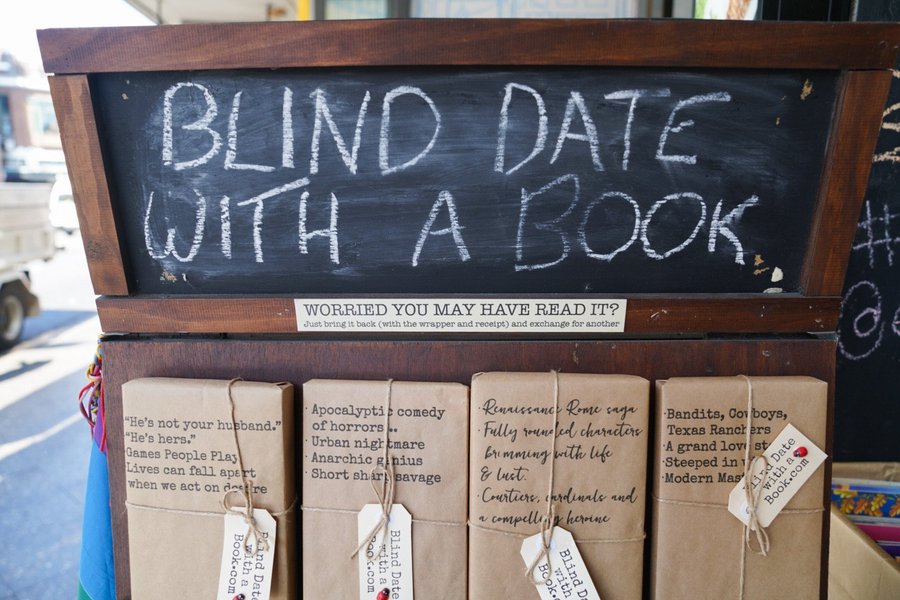 BLIND DATE
WITH A BOOK
WORRIED YOU MAY HAVE READ IT?
Just bring it back (with the wrapper and receipt) and exchange for another
“He's not your husband.”
“He's hers.”
Games People Play
Lives can fall apart
when we act on desire
Blind Date
with a
Book.com
· Apocalyptic comedy
of horrors ..
· Urban nightmare
· Anarchic genius
· Short sharp savage
Blind Date
with a
Book.com
· Renaissance Rome saga
· Fully rounded characters
brimming with life
& lust.
· Courtiers, cardinals and
a compelling heroine
Blind Da
with a
Book.com
· Bandits, Cowboys,
Texas Ranchers
· A grand love st
· Steeped in
· Modern Mas
Blind Date
with a
Book.com